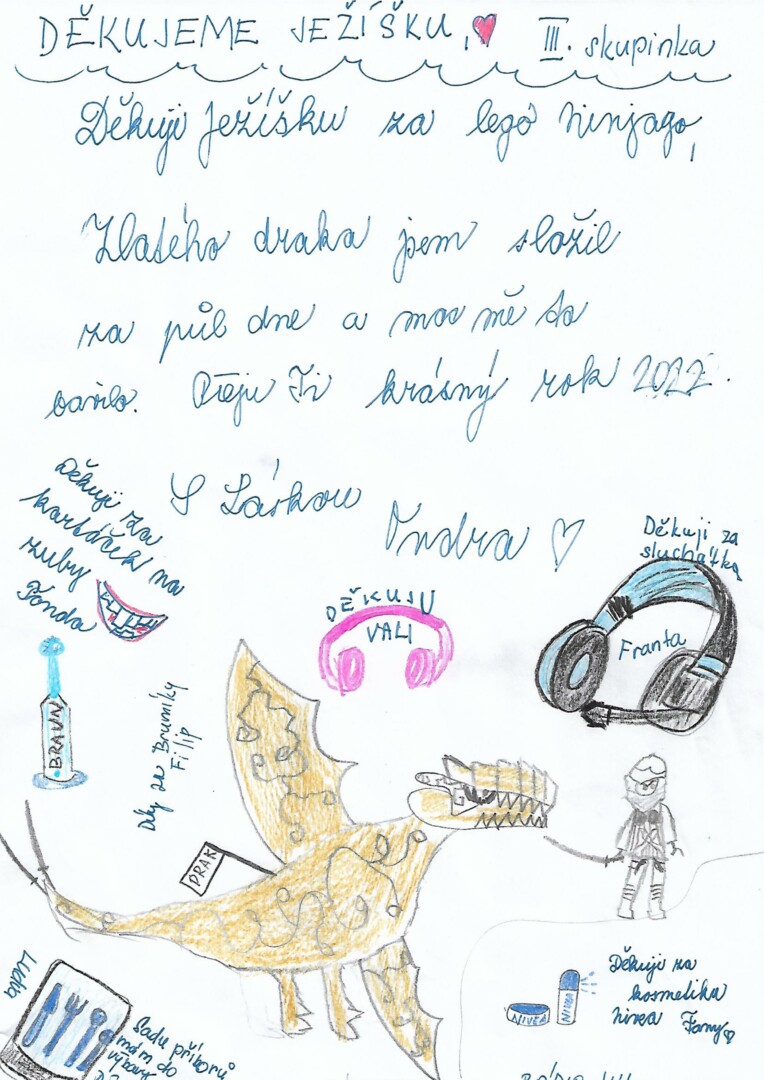 DĚKUJEME JEŽÍŠKU, III. skupinka
Děkuji Ježíšku za lego ninjago,
Zlatého draka jsem složil
za půl dne a moc mě to
bavilo. Přeju Ti krásný rok 2022.
S Láskou
Ondra
Děkuji za
kartáček na
zuby
Tonda
DĚKUJU
VALI
Děkuji za
sluchátka
Franta
BRAUN
Díky za Brumíky
Filip
DRAK
Sadu příborů
mám do
výbavy
NIVEA
NIVEA
Děkuji za
kosmetika
nivea Fany